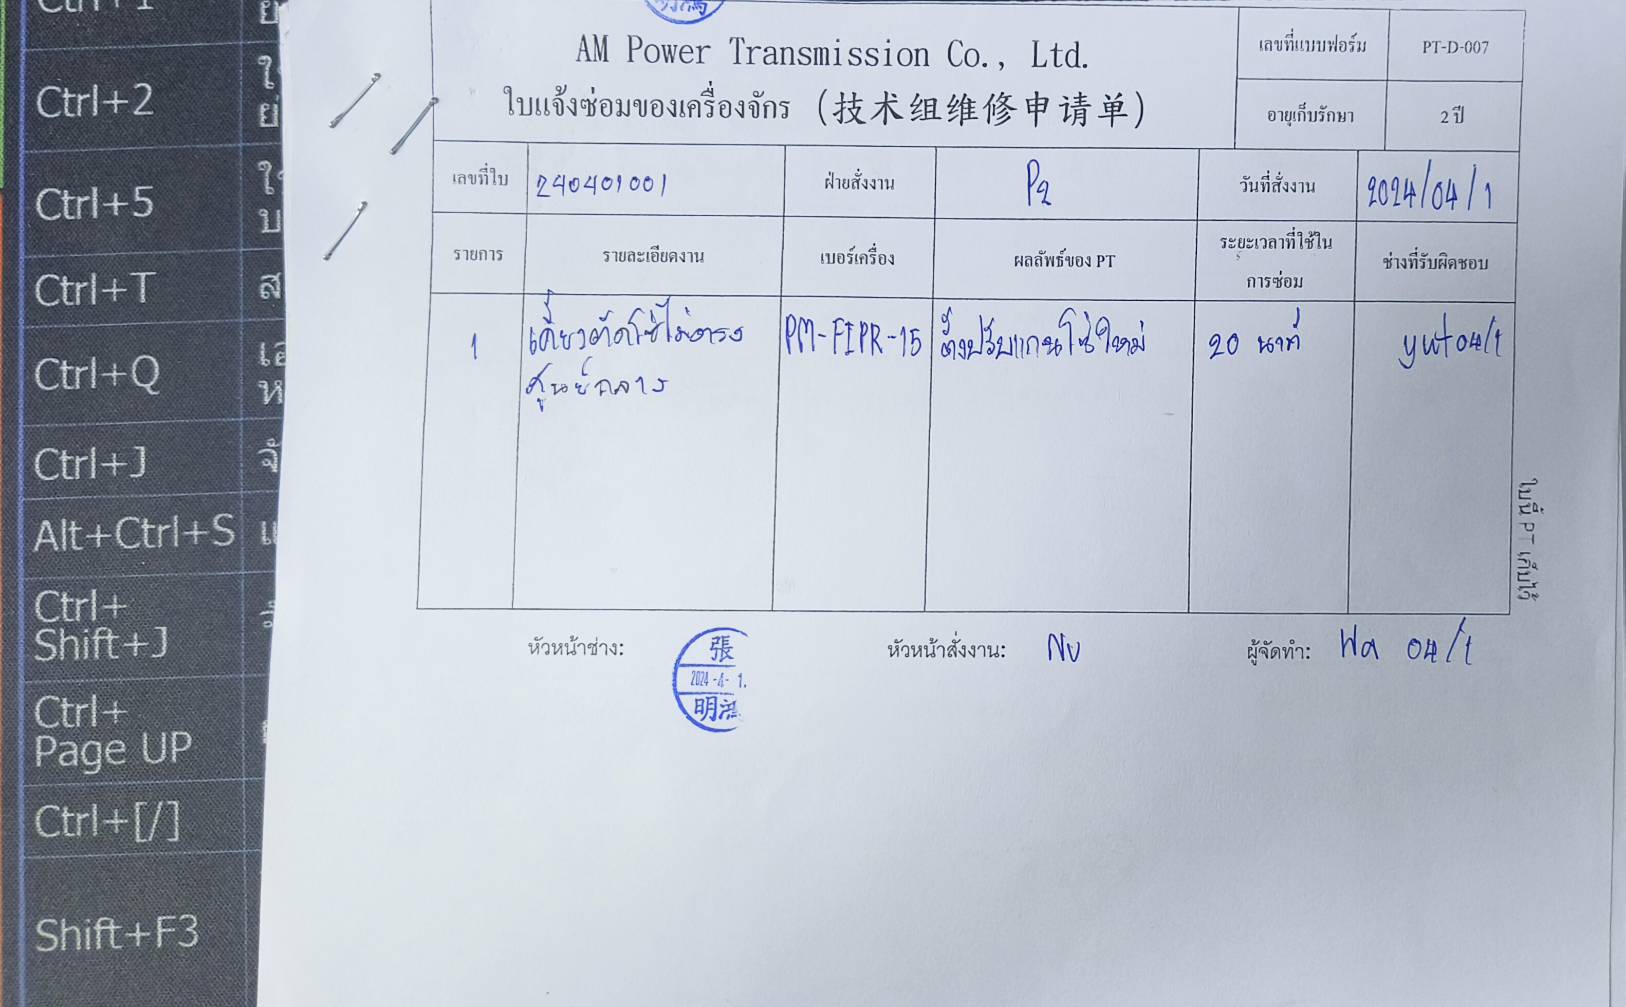 Ctrl+2
Ctrl+5
Ctrl+T
Ctrl+Q
Ctrl+J
Alt+Ctrl+S
Ctrl+
Shift+J
Ctrl+
Page UP
Ctrl+[/]
Shift+F3
AM Power Transmission Co., Ltd.
ใบแจ้งซ่อมของเครื่องจักร (技术组维修申请单)
เลขที่แบบฟอร์ม PT-D-007
อายุเก็บรักษา 2 ปี
เลขที่ใบ 240401001 ฝ่ายสั่งงาน P2 วันที่สั่งงาน 2024/04/1
รายการ รายละเอียดงาน เบอร์เครื่อง ผลลัพธ์ของ PT ระยะเวลาที่ใช้ใน
การซ่อม ช่างที่รับผิดชอบ
1 ตัดโซ่ไม่ตรง PM-FIPR-15 ตั้งปรับแกนโซ่ใหม่ 20 นาที 04/1
ศูนย์กลาง
ใบนี้ PT เก็บไว้
หัวหน้าช่าง: 張 2024-4-1. 明鴻 หัวหน้าสั่งงาน: Nu ผู้จัดทำ: Wa 04/1